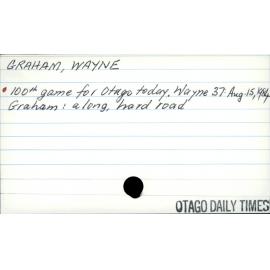 GRAHAM, WAYNE
100th game for Otago today, Wayne 37. Aug. 15, 1984
Graham: a long, hard road
OTAGO DAILY TIMES